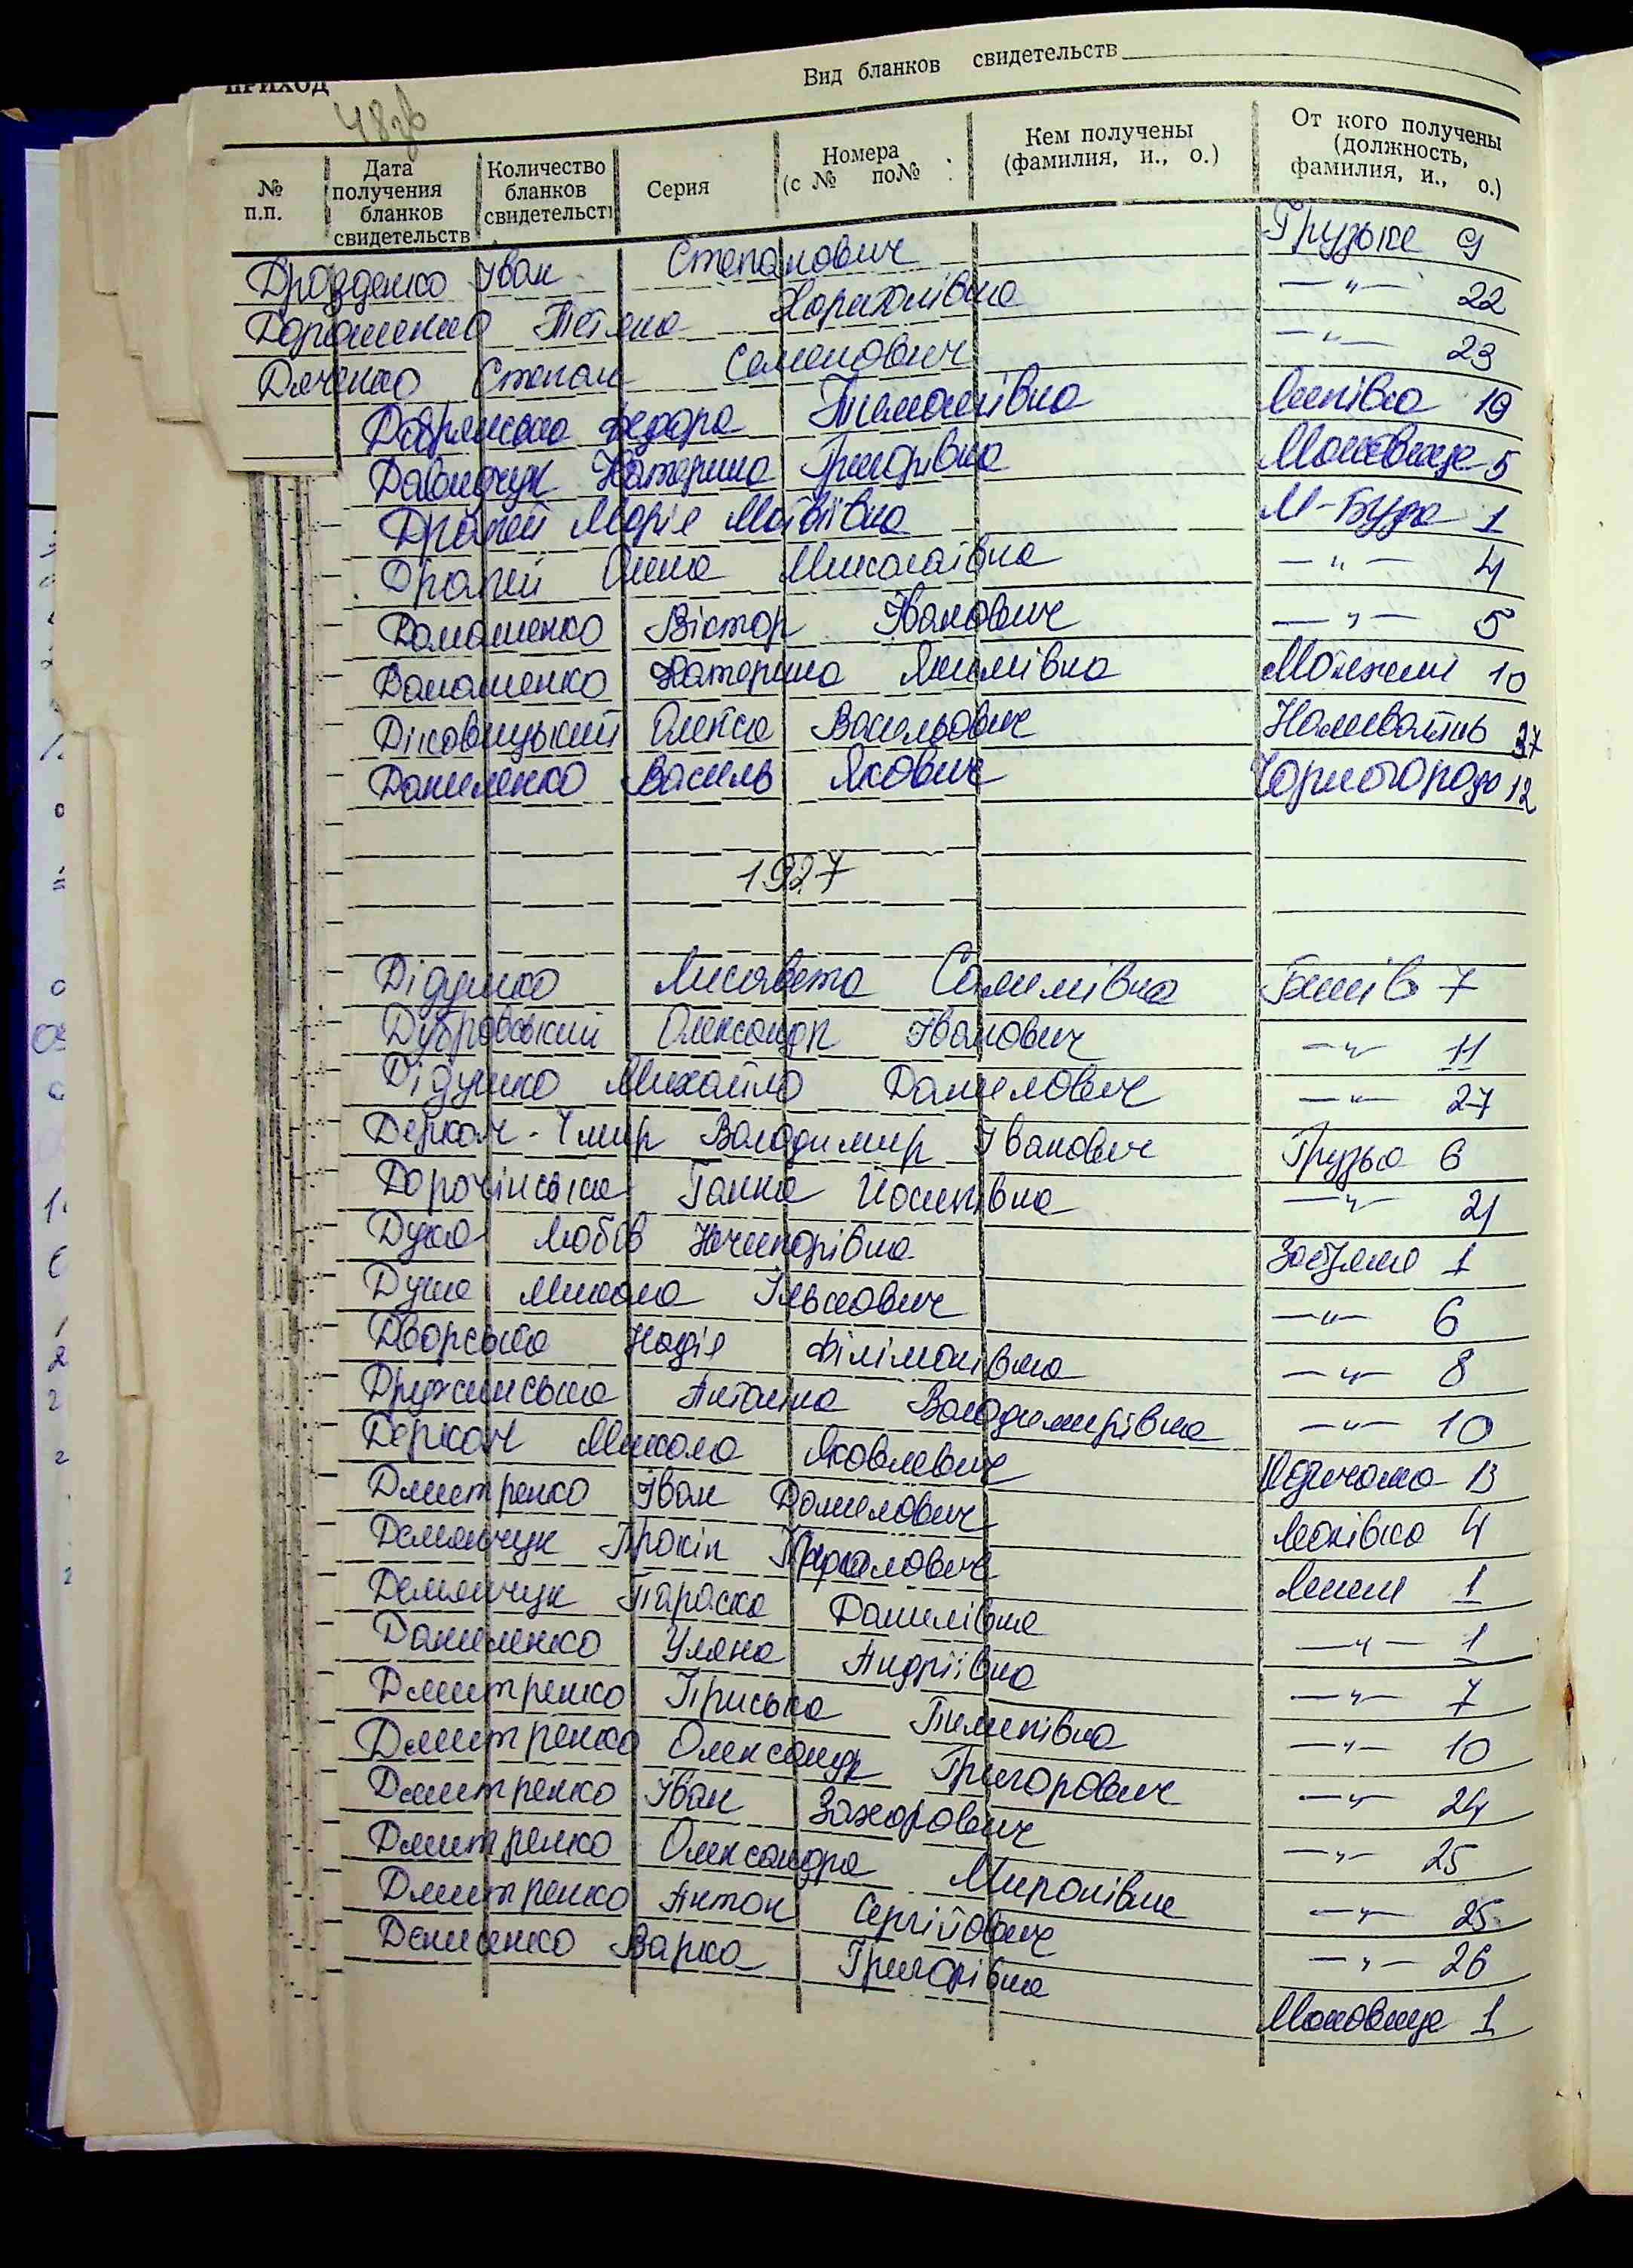 ПРИХОД
Вид бланков свидетельств
48зв
№ п.п.
Дата получения бланков свидетельств
Количество бланков свидетельств
Серия
Номера (с № по№
Кем получены (фамилия, и., о.)
От кого получены (должность, фамилия, и., о.)
Дрозденко Іван Степанович Грузьке 9
Дорошенко Тетяна Харитонівна —"— 22
Дяченко Степан Семенович —"— 23
Добрянська Федора Тимошівна Липівка 19
Давидчук Катерина Григорівна Маковище 5
Драпей Марія Матвіївна М-Буда 1
Драпей Олена Миколаївна —"— 4
Домашенко Віктор Іванович —"— 5
Домашенко Катерина Якимівна Мотижин 10
Діковицький Олекса Васильович Наливайків 37
Даниленко Василь Якович Чорногородка 12
1927
Дідушко Лисавета Самилівна Бишів 7
Дубровський Олександр Іванович —"— 11
Дідушко Михайло Данилович —"— 27
Деркач-Чмир Володимир Іванович Грузька 6
Дорочінська Ганна Йосипівна —"— 21
Дука Любов Ничипорівна Забуяння 1
Дуже Микола Ількович —"— 6
Дворська Надія Філімонівна —"— 8
Дружинська Антоніна Володимирівна —"— 10
Деркач Микола Яковлевич Кодичанка 13
Дмитренко Іван Данилович Леонівка 4
Демянчук Прокіп Лишня 1
Демянчук Параска Данилівна —"— 1
Даниленко Уляна Андріївна —"— 7
Дмитренко Пріська Пилипівна —"— 10
Дмитренко Олександр Григорович —"— 24
Дмитренко Іван Захарович —"— 25
Дмитренко Олександра Миронівна —"— 25
Дмитренко Антон Сергійович —"— 26
Денисенко Варка Григорівна Маковище 1